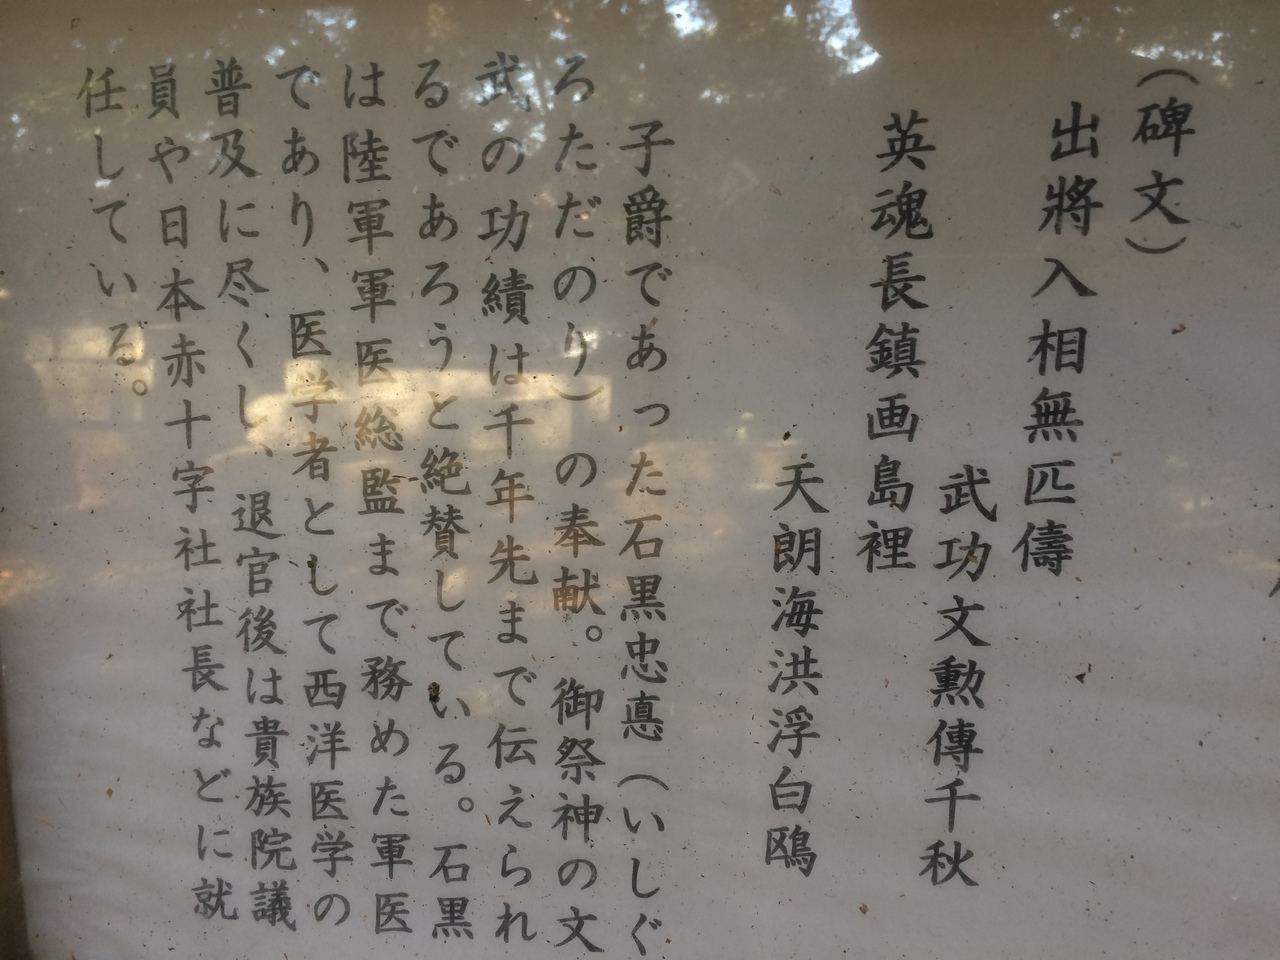 （碑文）
出將入相無匹儔
武功文勲傳千秋
英魂長鎮画島裡
天朗海洪浮白鴎
子爵であった石黒忠悳（いしぐ
ろただのり）の奉献。御祭神の文
武の功績は千年先まで伝えられ
るであろうと絶賛している。石黒
は陸軍軍医総監まで務めた軍医
であり、医学者として西洋医学の
普及に尽くし、退官後は貴族院議
員や日本赤十字社社長などに就
任している。